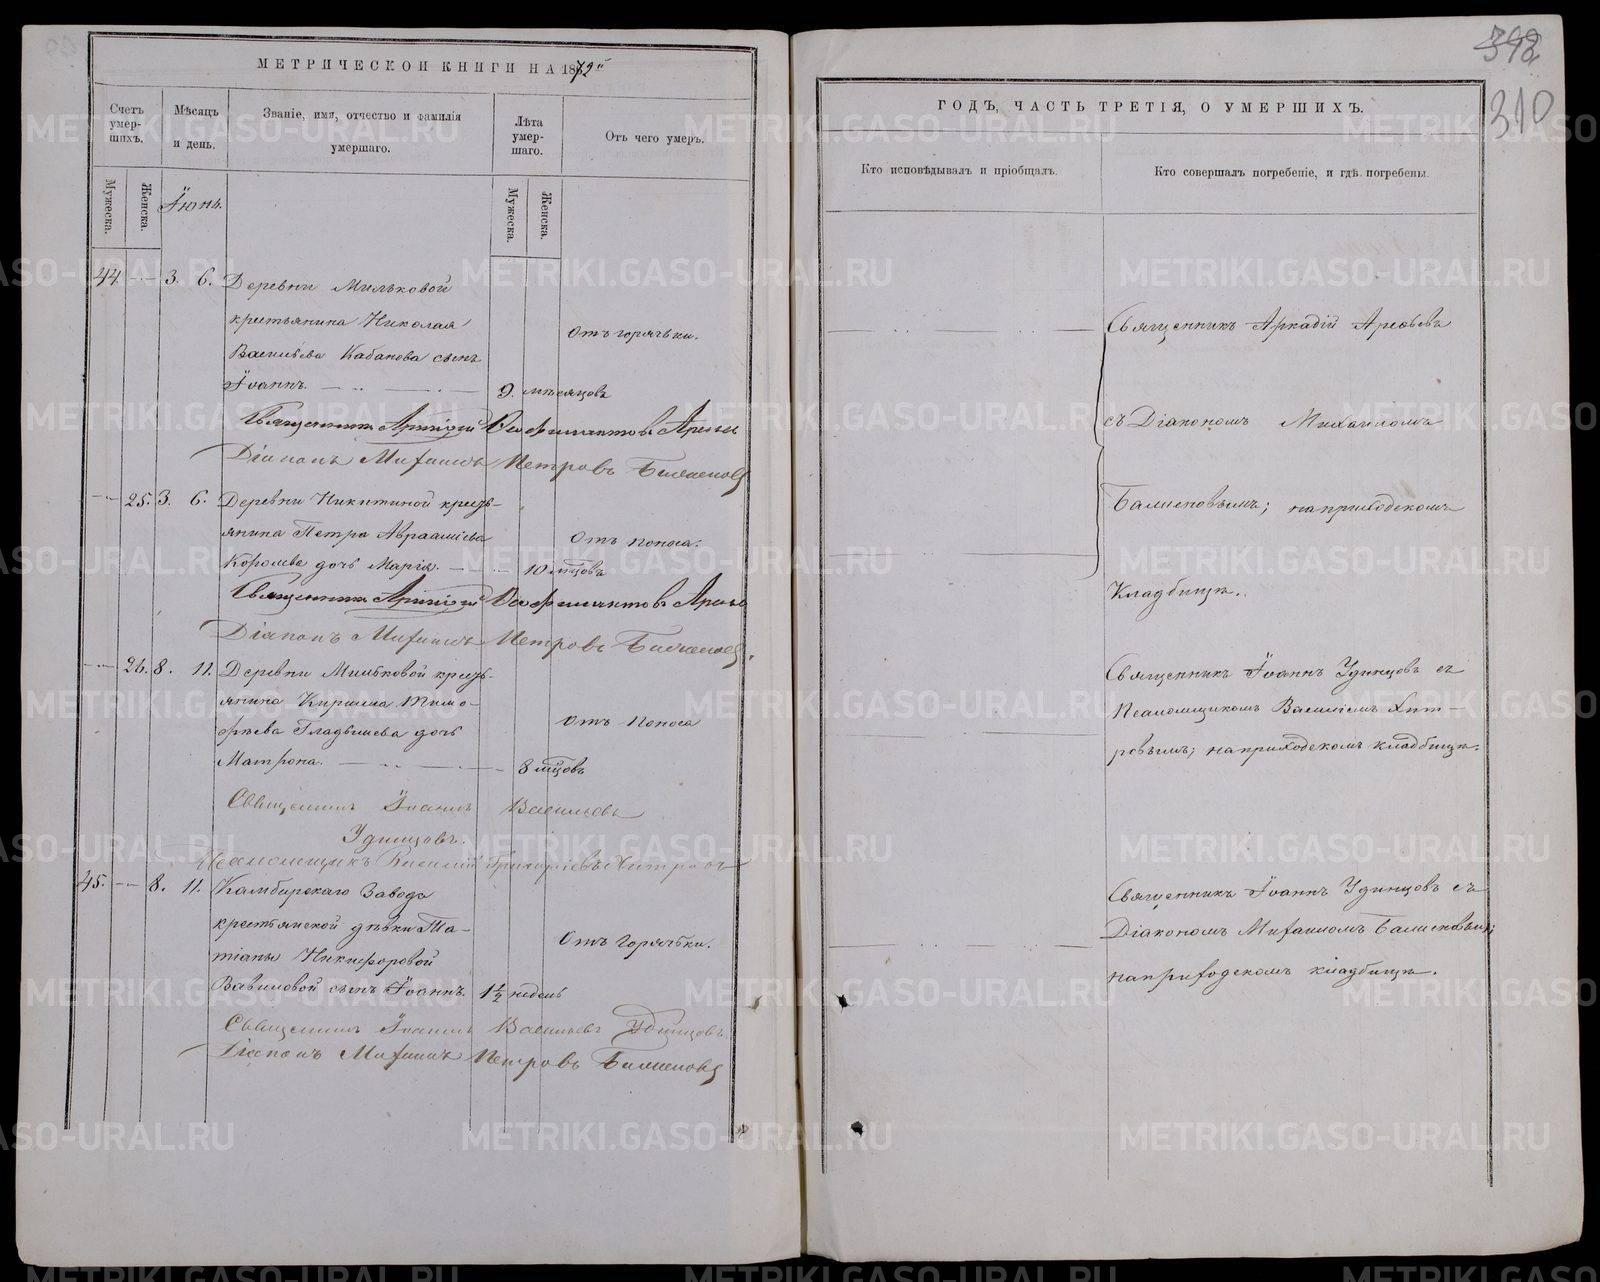 МЕТРИЧЕСКОЙ КНИГИ НА 1872й
Счетъ умер-шихъ.
Мѣсяцъ и день.
Званіе, имя, отчество и фамилія умершаго.
Лѣта умер-шаго.
Отъ чего умеръ.
Мужеска.
Женска.
Іюнь.
Мужеска.
Женска.
44. 3. 6. Деревни Мильковой
крестьянина Николая
Васильева Кабанова сынъ
Іоаннъ. 9. мѣсяцовъ
Отъ горячьки.
Священникъ Аркадій
Діаконъ Михаилъ Петровъ
25. 3. 6. Деревни Никитиной кресть-
янина Петра Авраамьева
Королева дочь Марія. 10 мцовъ
Отъ поноса.
Священникъ Аркадій
Діаконъ Михаилъ Петровъ
26. 8. 11. Деревни Мильковой кресть-
янина Кирилла Тимо-
фѣева Гладышева дочь
Матрона. 8 мцовъ
Отъ поноса
Священникъ Іоаннъ Васильевъ
Удинцовъ.
Псаломщикъ Василій Григоріевъ Хитровъ
45. 8. 11. Камбарскаго Завода
крестьянской дѣвки Та-
тіаны Никифоровой
Вавиловой сынъ Іоаннъ. 1½ недель
Отъ горячьки.
Священникъ Іоаннъ Васильевъ Удинцовъ.
Діаконъ Михаилъ Петровъ
348
310
ГОДЪ, ЧАСТЬ ТРЕТІЯ, О УМЕРШИХЪ.
Кто исповѣдывалъ и пріобщалъ.
Кто совершалъ погребеніе, и гдѣ погребены.
Священникъ Аркадій Арефьевъ
съ Діакономъ Михаиломъ
на приходскомъ
Кладбищѣ.
Священникъ Іоаннъ Удинцовъ съ
Псаломщикомъ Василіемъ Хит-
ровымъ; на приходскомъ кладбищѣ.
Священникъ Іоаннъ Удинцовъ съ
Діакономъ Михаиломъ
на приходскомъ кладбищѣ.
METRIKI.GASO-URAL.RU